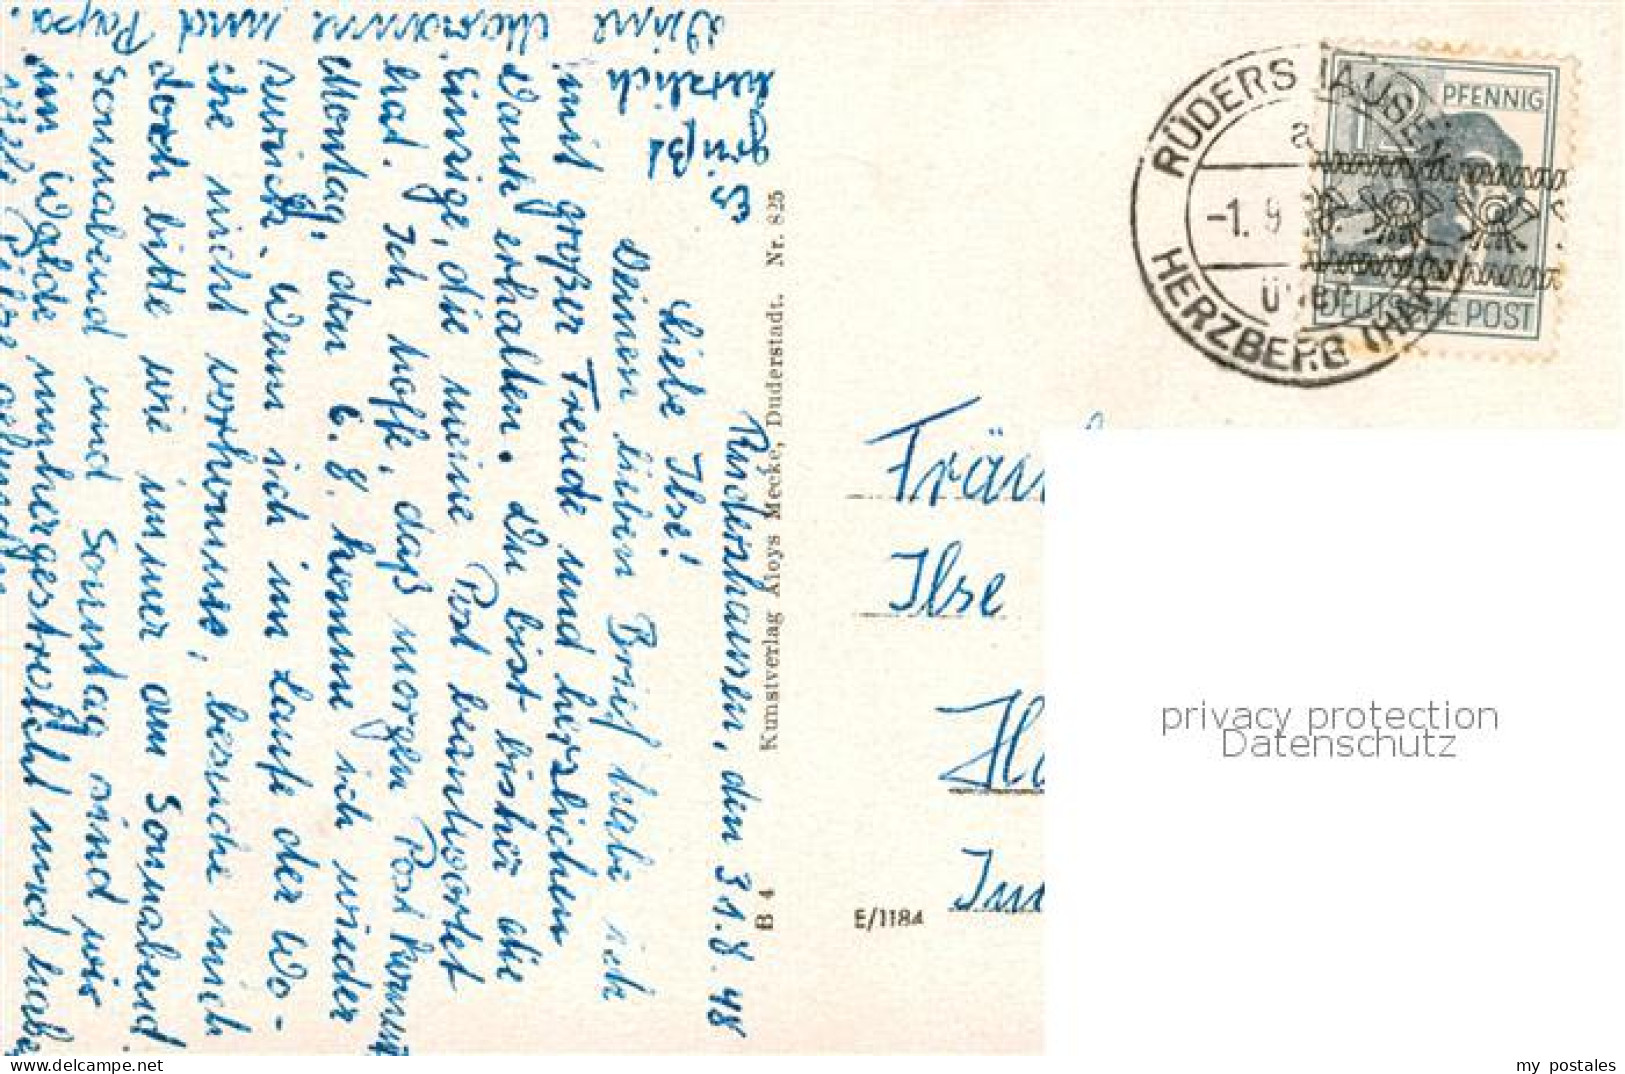 Rüdershausen, den 31.8.48
Liebe Ilse!
Deinen lieben Brief habe ich
mit großer Freude und herzlichen
Dank erhalten. Du bist bisher die
Einzige, die meine Post beantwortet
hat. Ich hoffe, daß morgen Post kommt
Montag, den 6.8. komme ich wieder
zurück. Wenn ich im Laufe der Wo-
che nicht vorkomme, besuche mich
doch bitte wie immer am Sonnabend
Sonnabend und Sonntag sind wir
im Walde umhergestreift und habe
viele Pilze
Es
grüßt
herzlich
Deine Marianne und Papa.
Kunstverlag Aloys Mecke, Duderstadt. Nr. 825
B 4
E/1184
RÜDERSHAUSEN
a
-1. 9 48.
über
HERZBERG (HARZ)
12 PFENNIG
DEUTSCHE POST
Fräu
Ilse
Ha
Im
privacy protection
Datenschutz
my postales